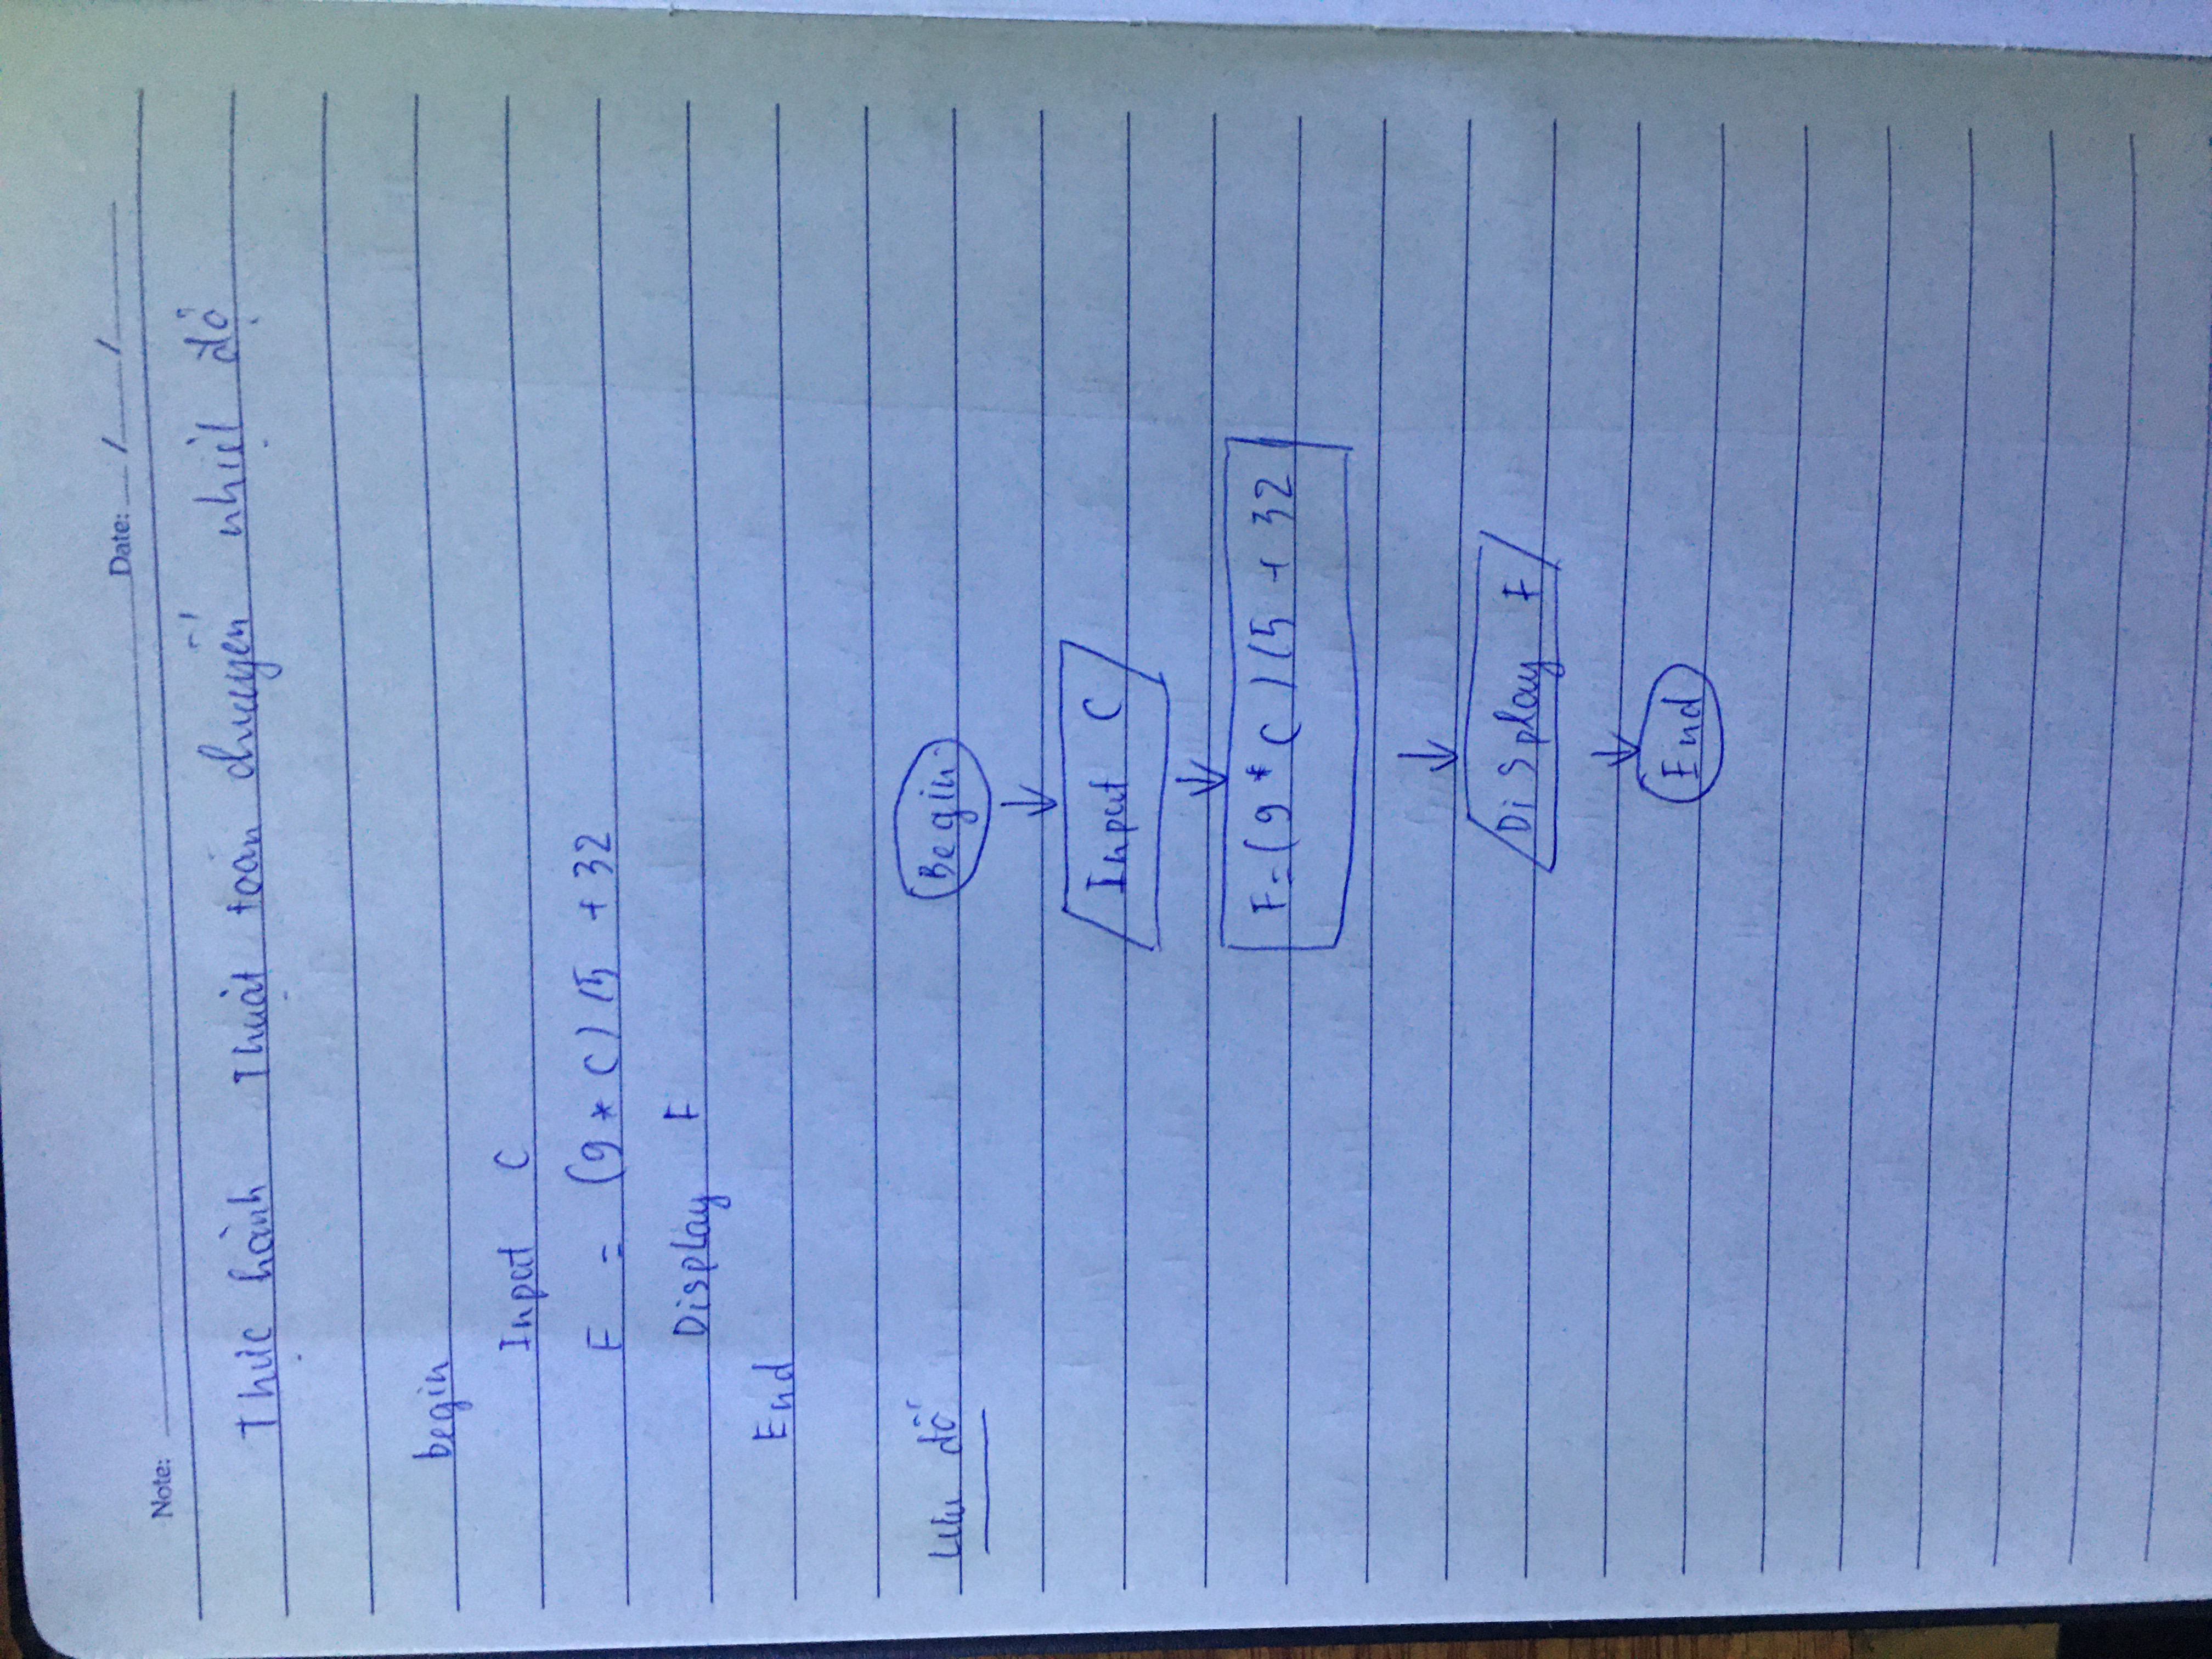 Date: / /
Note:
Thực hành Thuật toán chuyển nhiệt độ
begin
Input C
F = (9 * C) / 5 + 32
Display F
End
Lưu đồ
Begin
Input C
F = (9 * C) / 5 + 32
Display F
End